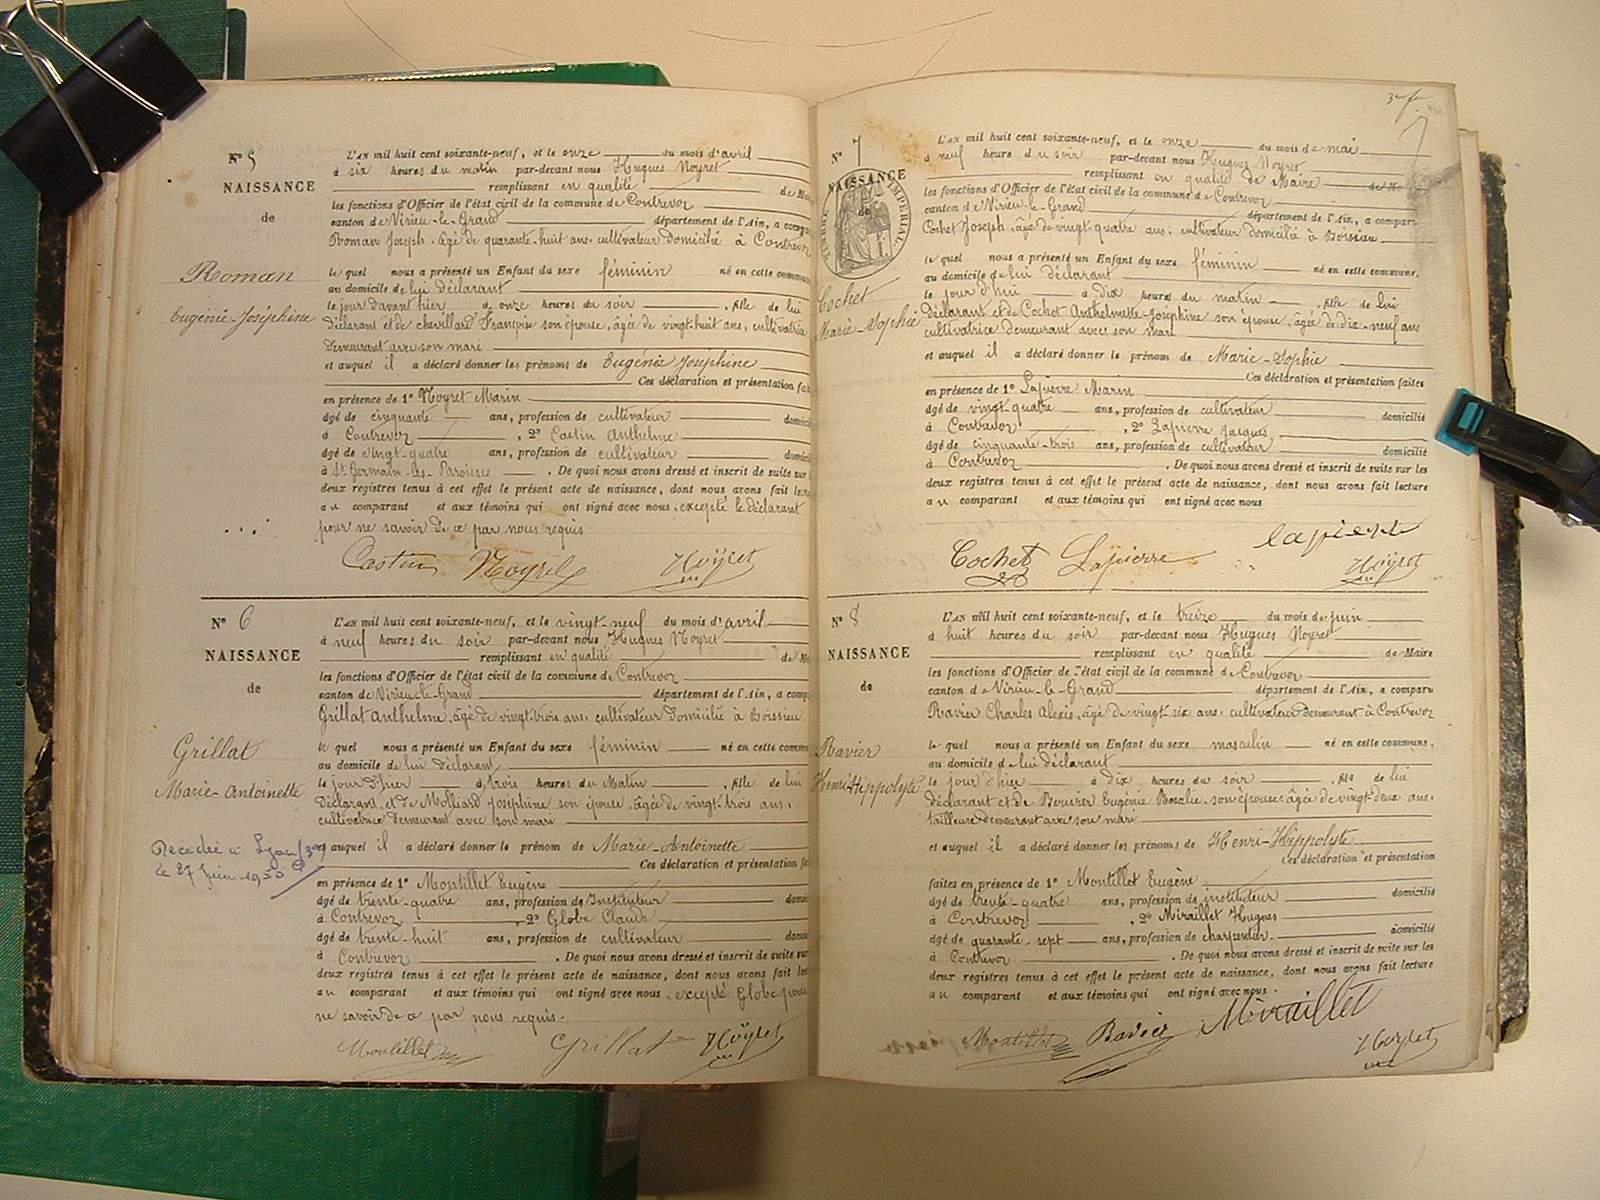 N° 5
NAISSANCE
de
Roman
Eugénie-Joséphine
L'AN mil huit cent soixante-neuf, et le onze du mois d'avril
à six heures du matin par-devant nous Hugues Noyret
remplissant en qualité de Ma
les fonctions d'Officier de l'état civil de la commune de Contrevoz
canton de Virieu-le-Grand département de l'Ain, a compa
Roman Joseph, âgé de quarante-huit ans, cultivateur domicilié à Contrevoz
le quel nous a présenté un Enfant du sexe féminin né en cette commun
au domicile de lui déclarant
le jour d'avant hier à onze heures du soir, fille de lui
déclarant et de chevillard Françoise son épouse, âgée de vingt-huit ans, cultivatrice
demeurant avec son mari
et auquel il a déclaré donner les prénoms de Eugénie Joséphine
Ces déclaration et présentation fait
en présence de 1° Noyret Marin
âgé de cinquante ans, profession de cultivateur domici
à Contrevoz, 2° Castin Anthelme
âgé de vingt-quatre ans, profession de cultivateur domici
à St Germain-les-Paroisses. De quoi nous avons dressé et inscrit de suite sur
deux registres tenus à cet effet le présent acte de naissance, dont nous avons fait lectu
au comparant et aux témoins qui ont signé avec nous, excepté le déclarant
pour ne savoir de ce par nous requis.
Castin Noyret Noÿret
N° 6
NAISSANCE
de
Grillat
Marie-Antoinette
Décédée à Lyon (3e)
le 27 Juin 1950
L'AN mil huit cent soixante-neuf, et le vingt-neuf du mois d'avril
à neuf heures du soir par-devant nous Hugues Noyret
remplissant en qualité de Ma
les fonctions d'Officier de l'état civil de la commune de Contrevoz
canton de Virieu-le-Grand département de l'Ain, a compa
Grillat Anthelme, âgé de vingt-trois ans, cultivateur domicilié à Boissieu
le quel nous a présenté un Enfant du sexe féminin né en cette commun
au domicile de lui déclarant
le jour d'hier à trois heures du matin, fille de lui
déclarant, et de Molliard Joséphine son épouse, âgée de vingt-trois ans,
cultivatrice demeurant avec son mari
et auquel il a déclaré donner le prénom de Marie-Antoinette
Ces déclaration et présentation fai
en présence de 1° Montillet Eugène
âgé de trente-quatre ans, profession de Instituteur domici
à Contrevoz, 2° Globe Claude
âgé de trente-huit ans, profession de cultivateur domici
à Contrevoz. De quoi nous avons dressé et inscrit de suite sur
deux registres tenus à cet effet le présent acte de naissance, dont nous avons fait lec
au comparant et aux témoins qui ont signé avec nous, excepté Globe pour
ne savoir de ce par nous requis.
Montillet Grillat Noÿret
N° 7
NAISSANCE
de
TIMBRE IMPERIAL
Cochet
Marie-Sophie
L'AN mil huit cent soixante-neuf, et le onze du mois de mai
à neuf heure du soir par-devant nous Hugues Noyret
remplissant en qualité de Maire
les fonctions d'Officier de l'état civil de la commune de Contrevoz
canton de Virieu-le-Grand département de l'Ain, a comparu
Cochet Joseph, âgé de vingt-quatre ans, cultivateur domicilié à Boissieu
le quel nous a présenté un Enfant du sexe féminin né en cette commune,
au domicile de lui déclarant
le jour d'hui à dix heures du matin, fille de lui
déclarant et de Cochet Anthelmette-Joséphine son épouse, âgée de dix-neuf ans
cultivatrice demeurant avec son mari
et auquel il a déclaré donner le prénom de Marie-Sophie
Ces déclaration et présentation faites
en présence de 1° Lapierre Marin
âgé de vingt-quatre ans, profession de cultivateur domicilié
à Contrevoz, 2° Lapierre Jacques
âgé de cinquante-trois ans, profession de cultivateur domicilié
à Contrevoz. De quoi nous avons dressé et inscrit de suite sur les
deux registres tenus à cet effet le présent acte de naissance, dont nous avons fait lecture
au comparant et aux témoins qui ont signé avec nous
lapierre
Cochet Lapierre Noÿret
N° 8
NAISSANCE
de
Ravier
Henri-Hippolyte
L'AN mil huit cent soixante-neuf, et le treize du mois de juin
à huit heures du soir par-devant nous Hugues Noyret
remplissant en qualité de Maire
les fonctions d'Officier de l'état civil de la commune de Contrevoz
canton de Virieu-le-Grand département de l'Ain, a comparu
Ravier Charles Alexis, âgé de vingt-six ans, cultivateur demeurant à Contrevoz
le quel nous a présenté un Enfant du sexe masculin né en cette commune,
au domicile de lui déclarant
le jour d'hier à dix heures du soir, fils de lui
déclarant et de Bouvier Eugénie Rosalie, son épouse, âgée de vingt-deux ans,
tailleuse demeurant avec son mari
et auquel il a déclaré donner les prénoms de Henri-Hippolyte
Ces déclaration et présentation
faites en présence de 1° Montillet Eugène
âgé de trente-quatre ans, profession de instituteur domicilié
à Contrevoz, 2° Miraillet Hugues
âgé de quarante-sept ans, profession de charpentier domicilié
à Contrevoz. De quoi nous avons dressé et inscrit de suite sur les
deux registres tenus à cet effet le présent acte de naissance, dont nous avons fait lecture
au comparant et aux témoins qui ont signé avec nous.
Montillet Ravier Miraillet
Noyret